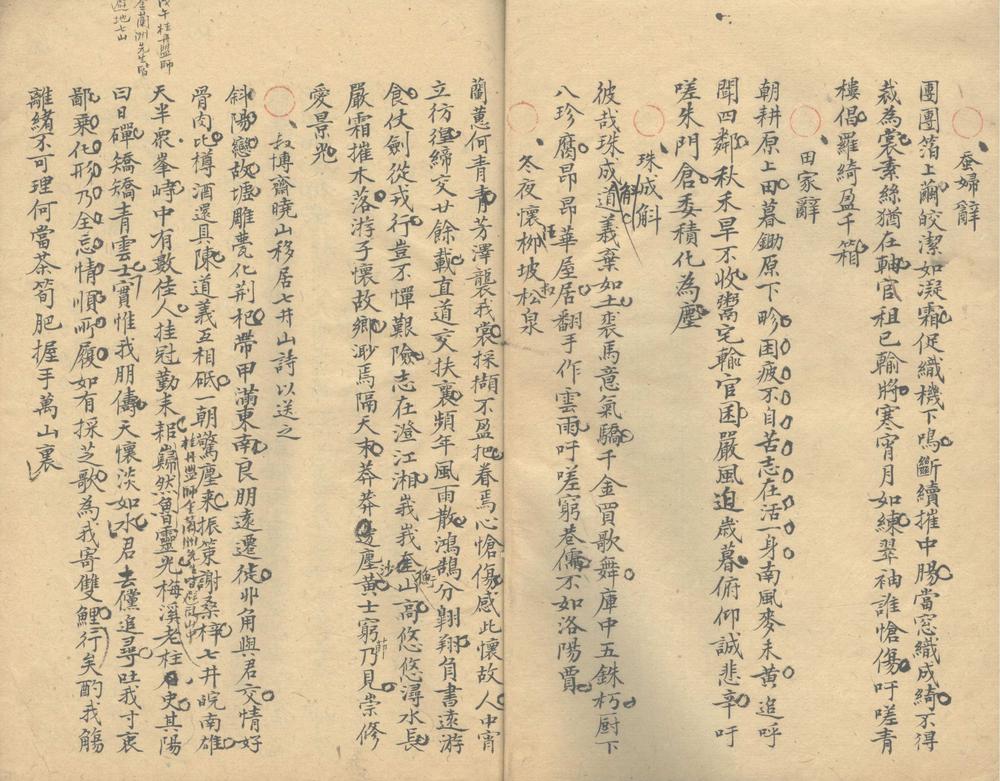 蚕婦辭
團團箔上繭皎潔如凝霜促織機下鳴斷續摧中腸當窓織成綺不得
裁為裳素絲猶在軸官租已輸將寒宵月如練翠袖誰愴傷吁嗟青
樓倡羅綺盈千箱
田家辭
朝耕原上田暮鋤原下畛困疲不自苦志在活一身南風麥未黃追呼
聞四鄰秋禾早不收鬻宅輸官困嚴風迫歲暮俯仰誠悲辛吁
嗟朱門倉委積化為塵
珠成斛
彼哉珠成道斛義棄如土裘馬意氣驕千金買歌舞庫中五銖朽厨下
八珍腐昂昂華屋居翻手作雲雨吁嗟窮巷儒不如洛陽賈
冬夜懷柳坡汪松泉
蘭蕙何青青芳澤襲我裳採擷不盈把眷焉心愴傷感此懷故人中宵
立彷徨締交廿餘載直道交扶襄頻年風雨散鴻鵠分翺翔負書遠游
食仗劍從戎行豈不憚艱險志在澄江湘峩峩奎山高悠悠潯水長
嚴霜摧木落游子懷故鄉渺焉隔天末莽莽邊塵黃士窮乃見崇修
愛景光
叔博齋曉山移居七井山詩以送之
斜陽戀故墟雕甍化荆杞帶甲滿東南良朋遠遷徙丱角與君交情好
骨肉比樽酒還具陳道義互相砥一朝驚塵来振策謝桑梓七井皖南雄
天半衆峯峙中有數佳人挂冠勤耒耜巋然魯靈光梅溪老柱史其陽
桂丹盟師金蘭洲先生皆避居山中
曰日磾矯矯青雲士實惟我朋儔天懷淡如水君去儻追尋吐我寸衷
鄙乘化形乃全忘情順所履如有採芝歌為我寄雙鯉行矣酌我觴
離緒不可理何當茶筍肥握手萬山裏
戊午桂丹盟師
金蘭洲先生皆
避地七山